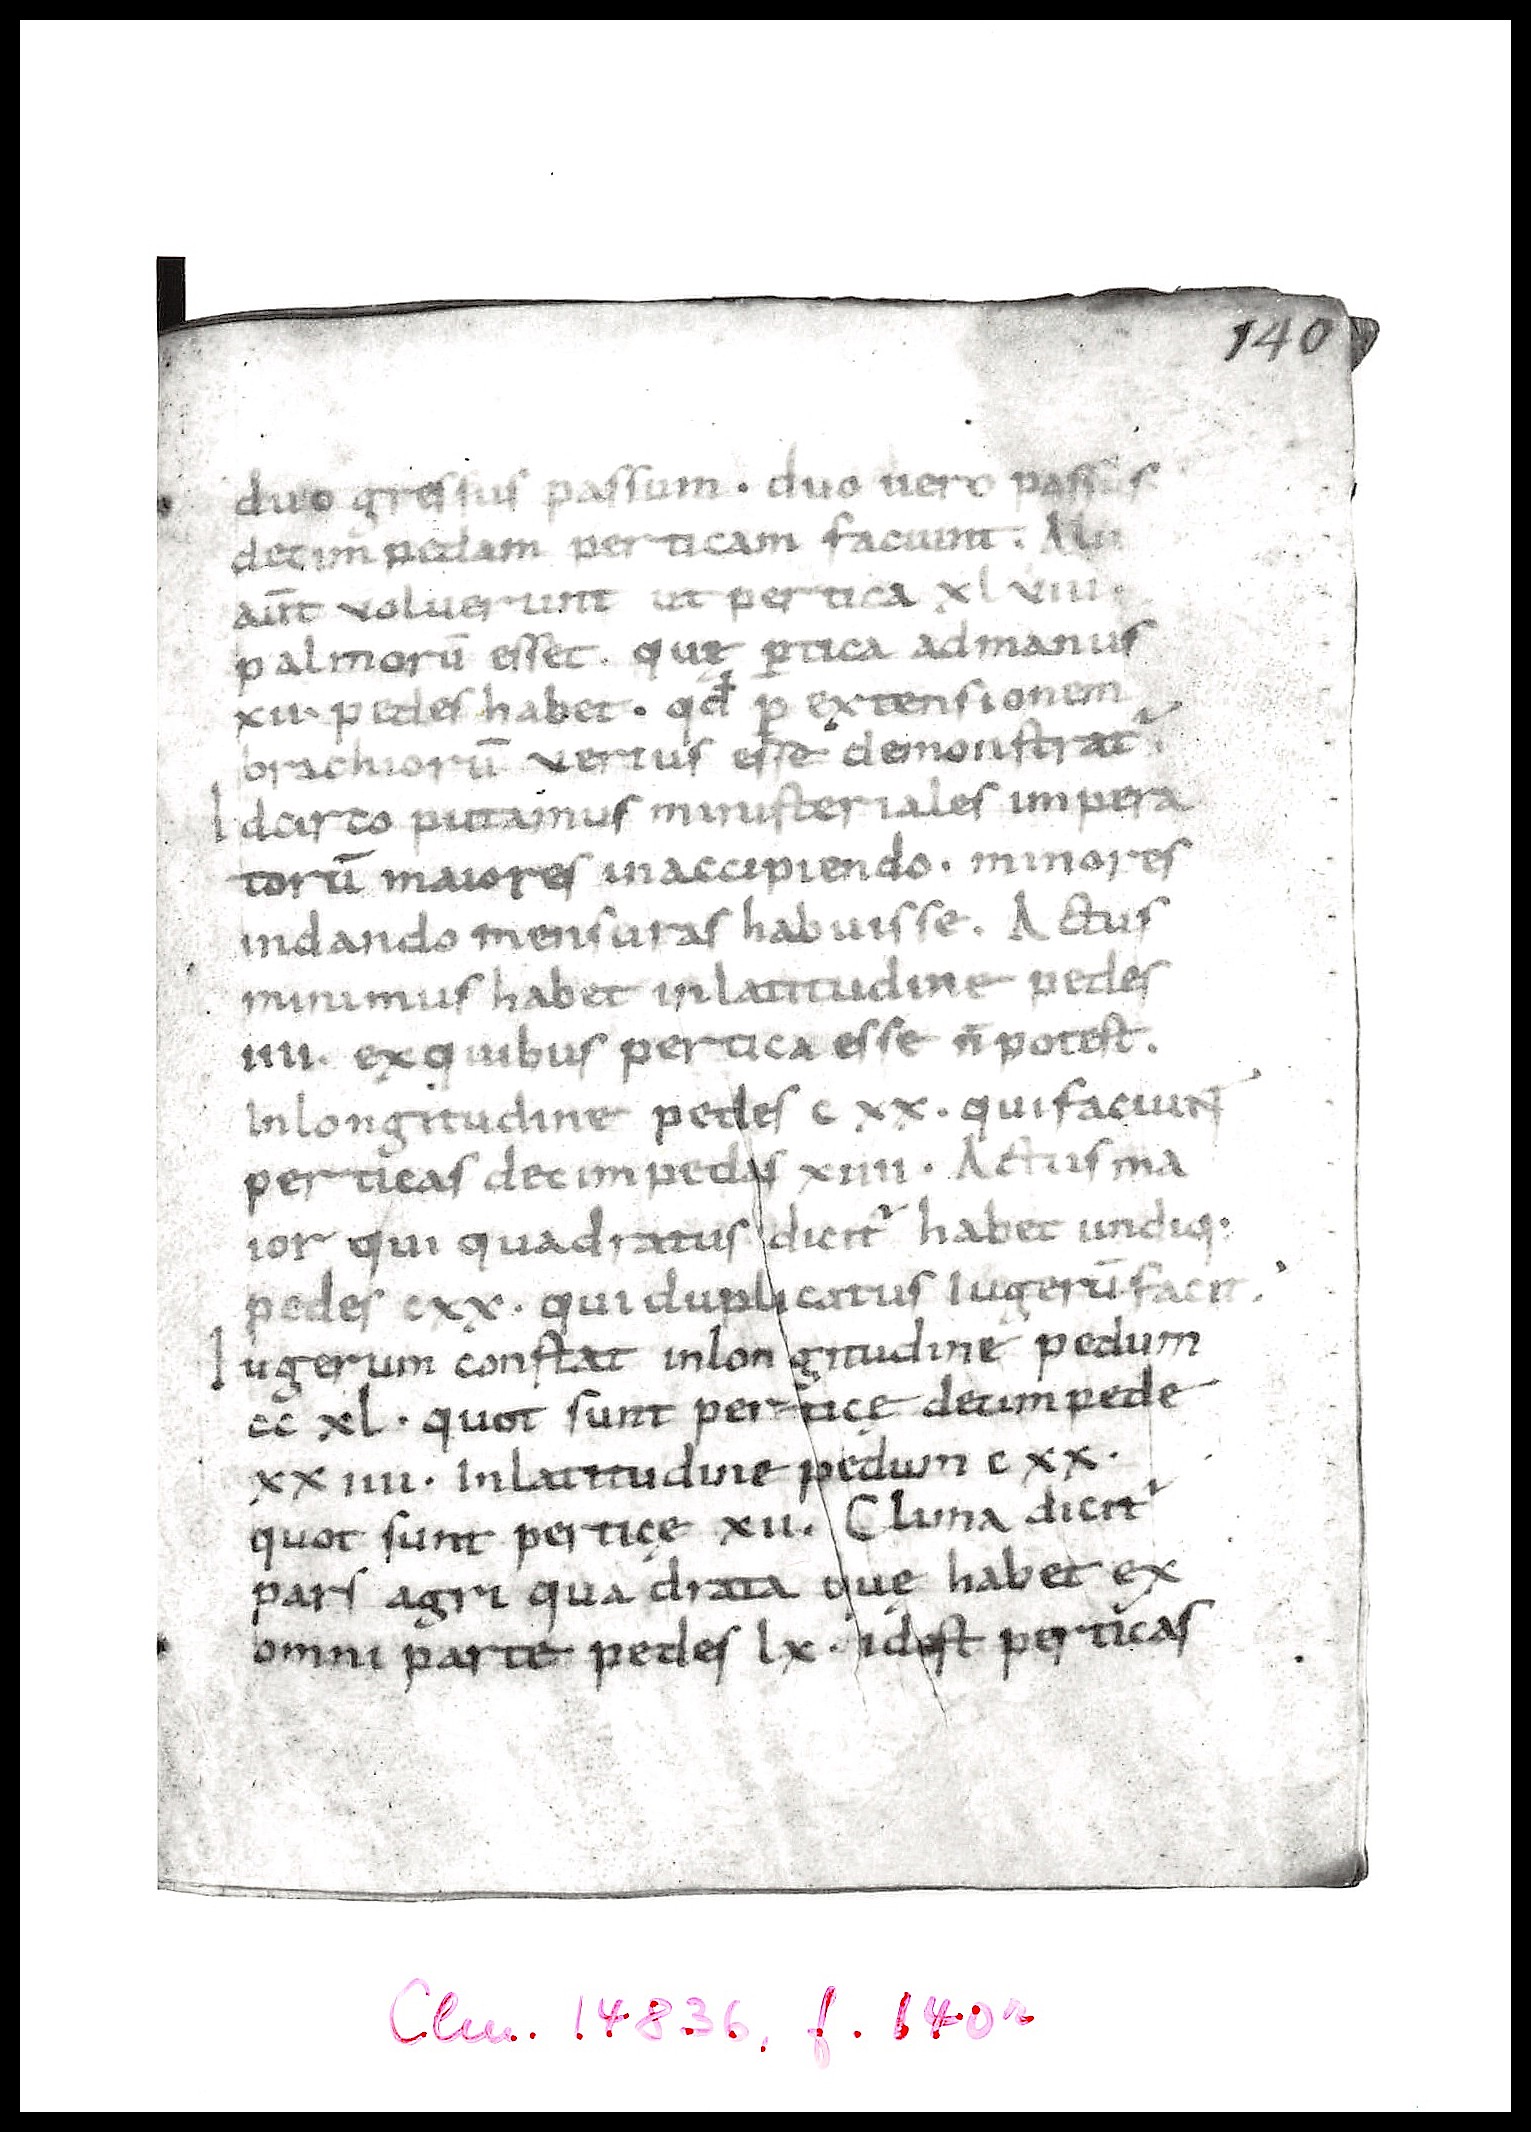 140
duo gressus passum. duo uero passus
decimpedam perticam faciunt. Alii
aut̄ voluerunt ut pertica xl viii.
palmorū esset. quę ꝑtica admanus
xii. pedes habet. qđ ꝑ extensionem
brachiorū verius esse demonstrat᷑.
Idcirco putamus ministeriales impera
torū maiores inaccipiendo. minores
indando mensuras habuisse. Actus
minimus habet inlatitudine pedes
iiii. exquibus pertica esse n̄ potest.
Inlongitudine pedes c xx. quifaciunt
perticas decimpedas xiiii. Actus ma
ior qui quadratus dicit᷑ habet undiq.
pedes cxx. qui duplicatus Iugerū facit.
Iugerum constat inlongitudine pedum
cc xl. quot sunt perticę decimpede
xx iiii. Inlatitudine pedum c xx.
quot sunt perticę xii. Clima dicit᷑
pars agri quadrata quę habet ex
omni parte pedes lx. idest perticas
Clm. 14836, f. 140r